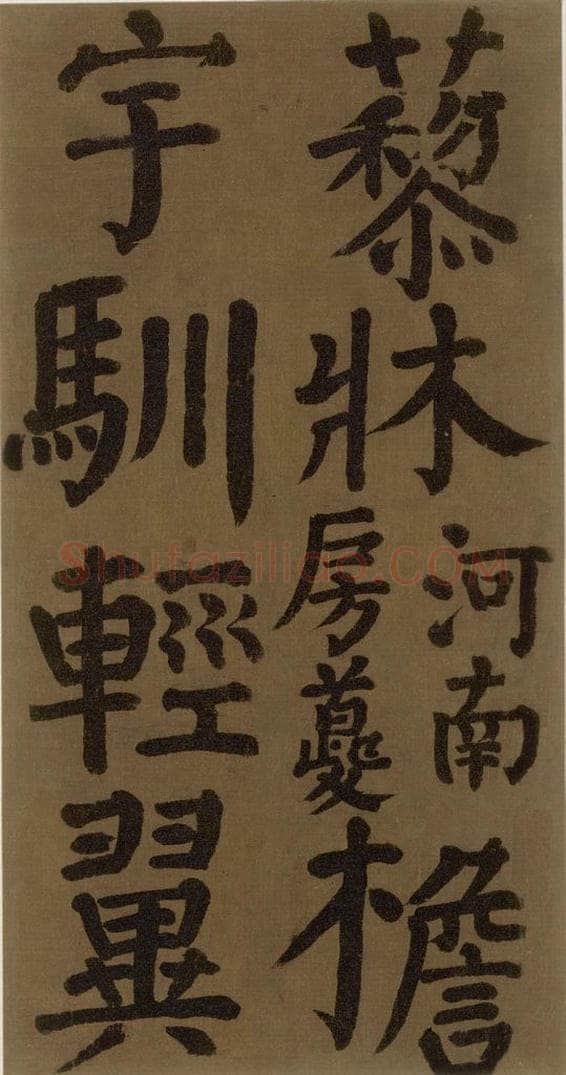 藜牀
河南
房夔
檐
宇馴輕翼
Shufaziliao.COM